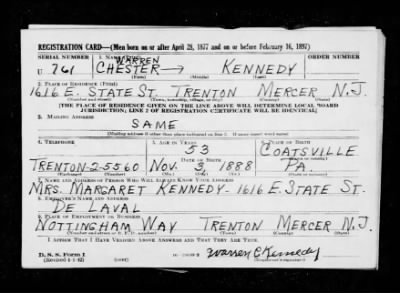 REGISTRATION CARD—(Men born on or after April 28, 1877 and on or before February 16, 1897)
SERIAL NUMBER 1. NAME (Print) ORDER NUMBER
WARREN
U 761 CHESTER → KENNEDY
(First) (Middle) (Last)
2. PLACE OF RESIDENCE (Print)
1616 E. STATE ST. TRENTON MERCER N.J.
(Number and street) (Town, township, village, or city) (County) (State)
[THE PLACE OF RESIDENCE GIVEN ON THE LINE ABOVE WILL DETERMINE LOCAL BOARD
JURISDICTION; LINE 2 OF REGISTRATION CERTIFICATE WILL BE IDENTICAL]
3. MAILING ADDRESS
SAME
(Mailing address if other than place indicated on line 2. If same insert word same)
4. TELEPHONE 5. AGE IN YEARS 6. PLACE OF BIRTH
53 COATSVILLE
DATE OF BIRTH
TRENTON-2-5560 NOV. 3, 1888 PA.
(Exchange) (Number) (Mo.) (Day) (Yr.) (State or country)
7. NAME AND ADDRESS OF PERSON WHO WILL ALWAYS KNOW YOUR ADDRESS
MRS. MARGARET KENNEDY-1616 E. STATE ST.
8. EMPLOYER'S NAME AND ADDRESS
DE LAVAL
9. PLACE OF EMPLOYMENT OR BUSINESS
NOTTINGHAM WAY TRENTON MERCER N.J.
(Number and street or R. F. D. number) (Town) (County) (State)
I AFFIRM THAT I HAVE VERIFIED ABOVE ANSWERS AND THAT THEY ARE TRUE.
D. S. S. Form 1 Warren C Kennedy
(Revised 4-1-42) (over) (Registrant's signature)